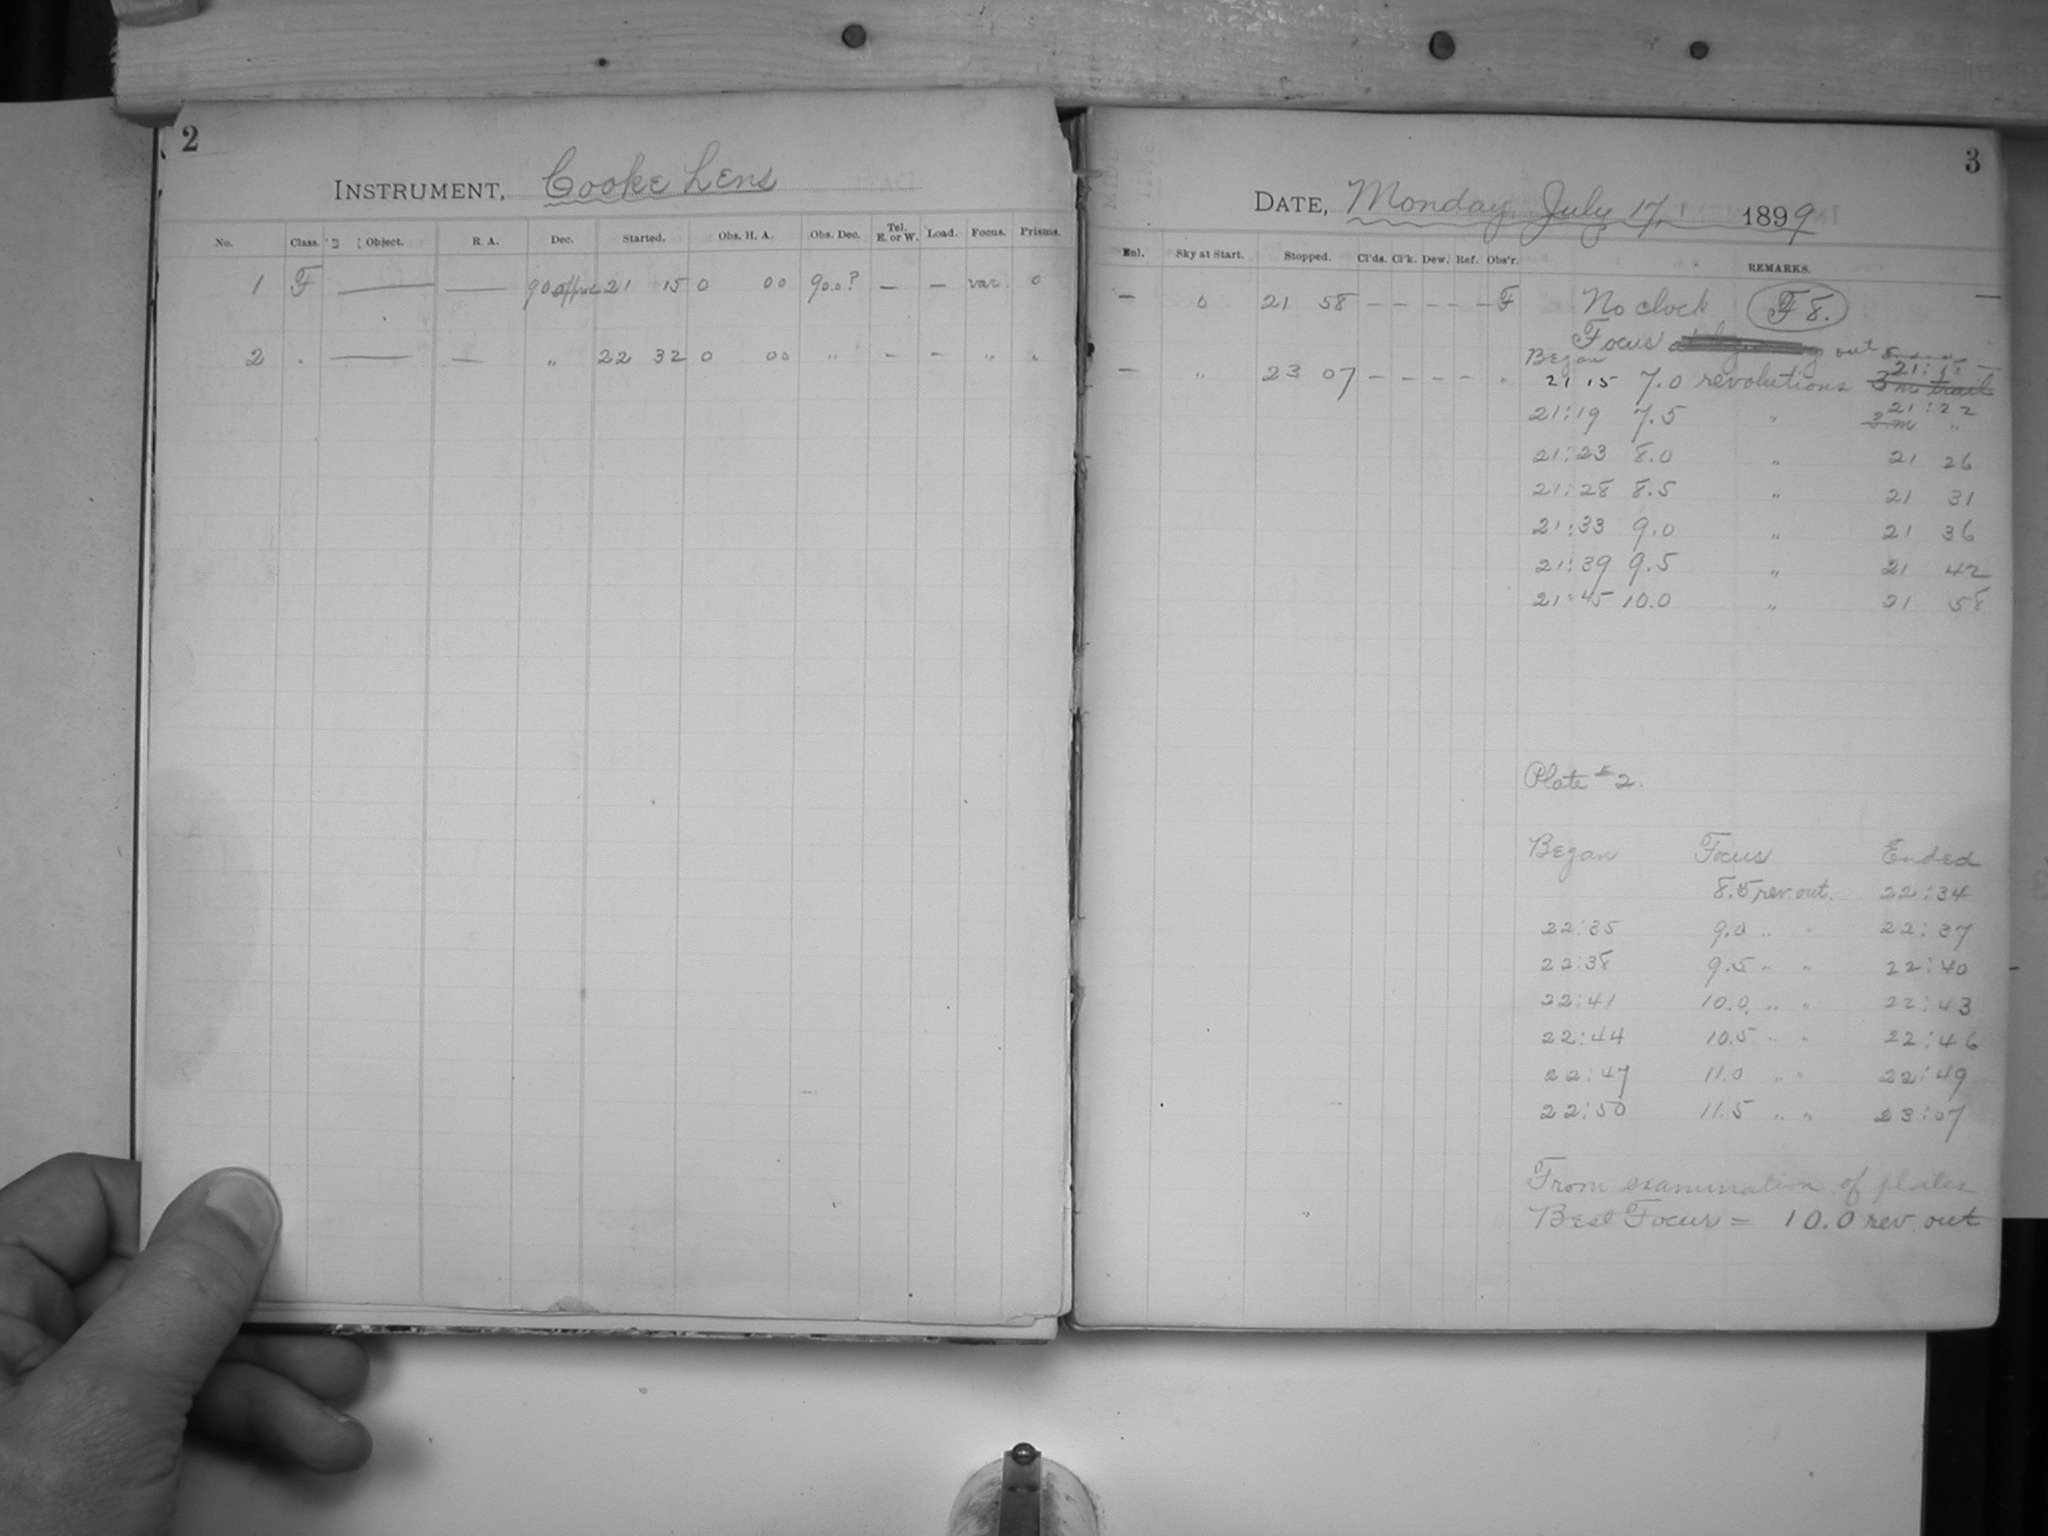 2
INSTRUMENT, Cooke Lens
No. Class. Object. R. A. Dec. Started. Obs. H. A. Obs. Dec. Tel. E. or W. Load. Focus. Prisms.
1 F — — 90 approx 21 15 0 00 90.0? — — var. 0
2 " — — " 22 32 0 00 " — — " "
3
DATE, Monday July 17, 1899
Enl. Sky at Start. Stopped. Cl'ds. Cl'k. Dew. Ref. Obs'r. REMARKS.
— 0 21 58 — — — — — F No clock F 8. —
Focus out Ended
— " 23 07 — — — — " Began
21 15 7.0 revolutions 3m trail 21:18
21:19 7.5 " 3m " 21:22
21:23 8.0 " 21 26
21:28 8.5 " 21 31
21:33 9.0 " 21 36
21:39 9.5 " 21 42
21:45 10.0 " 21 58
Plate # 2.
Began Focus Ended
8.5 rev. out. 22:34
22:35 9.0 " " 22:37
22:38 9.5 " " 22:40
22:41 10.0 " " 22:43
22:44 10.5 " " 22:46
22:47 11.0 " " 22:49
22:50 11.5 " " 23:07
From examination of plates
Best Focus = 10.0 rev. out